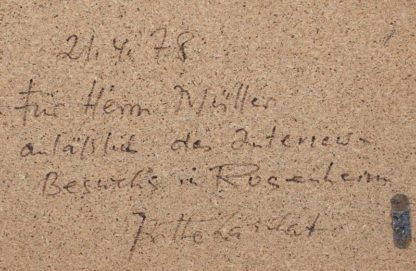 21.4.78
Für Herrn Müller
anläßlich des Interview-
Besuchs in Rosenheim